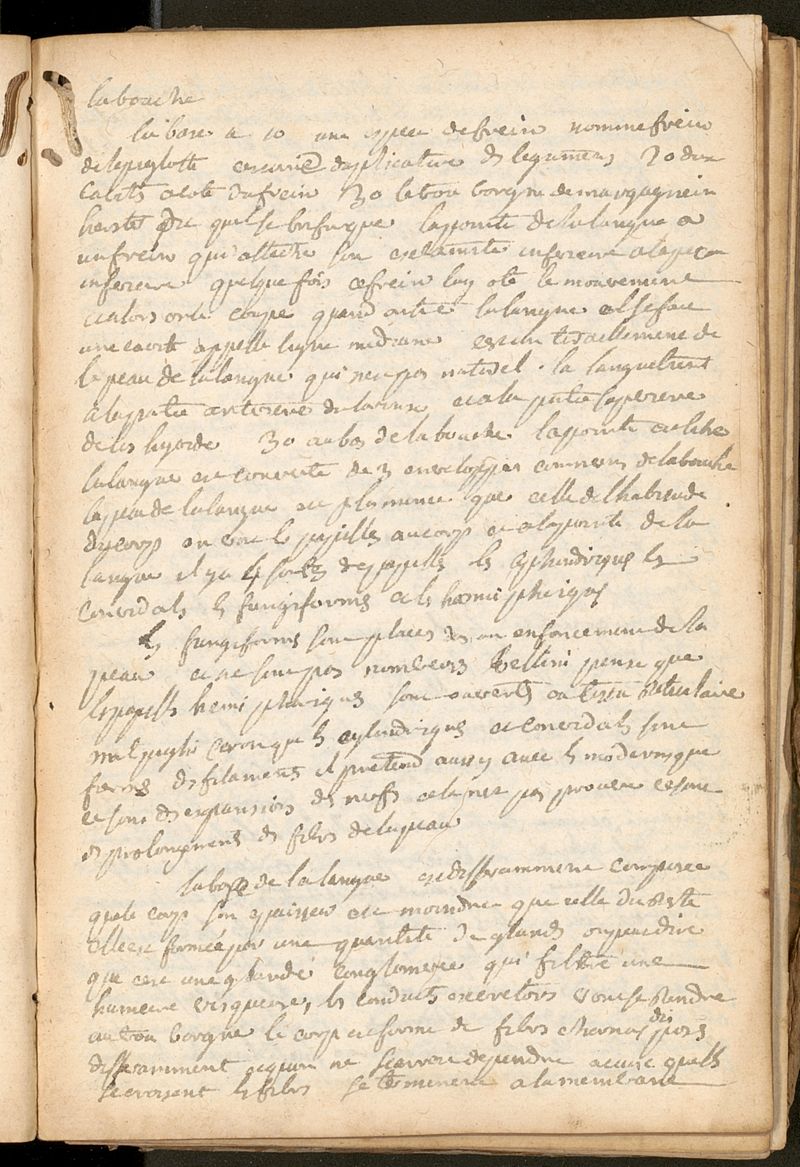 la bouche
la base a 1o une espece de frein nommé frein
de lepiglotte duplicature des tegumens 2o deux
cavités a coté du frein 3o le trou borgne de morgagni
la pointe de la langue a
un frein qui attache son extremité inferieure a la
inferieure quelque fois ce frein luy ote le mouvement
et alors on le coupe quand on tire la langue il se fait
une cavité appellé ligne mediane est un tiraillement de
la peau de la langue qui nest pas naturel . la langue tient
a la partie anterieure du larinx et a la partie superieure
de los hyoide 3o au bas de la bouche la pointe est libre
la langue est couverte de 3 enveloppes communes de la bouche
la peau de la langue est plus mince que celle de l habitude
du corps on voit les papilles au corps et a la pointe de la
langue il y a 4 sortes de papilles les cylindriques les
conoidales les fungiformes et les hemispheriques
les fungiformes sont placés dans un enfoncement de la
peau et ne sont pas nombreuses bellini pense que
les papilles hemispheriques sont ouvertes au tissu reticulaire
malpighi croit que les cylindriques et conoidales sont
formés de filaments il pretend aussy avec les modernes que
ce sont des expansions des nerfs cela nest pas prouvé ce sont
des prolongements des fibres de la peau
la base de la langue est differamment composée
que le corps son epaisseur est moindre que celle du reste
elle est formée par une quantité de glandes on peut dire
que cest une glande conglomerée qui filtre une
humeur visqueuse, les conduits excretoires vont se rendre
au trou borgne le corps est formé de fibres charnus disposés
differamment et qu on ne scauroit dependre a cause quelles
se croisent les fibres se terminent a la membrane